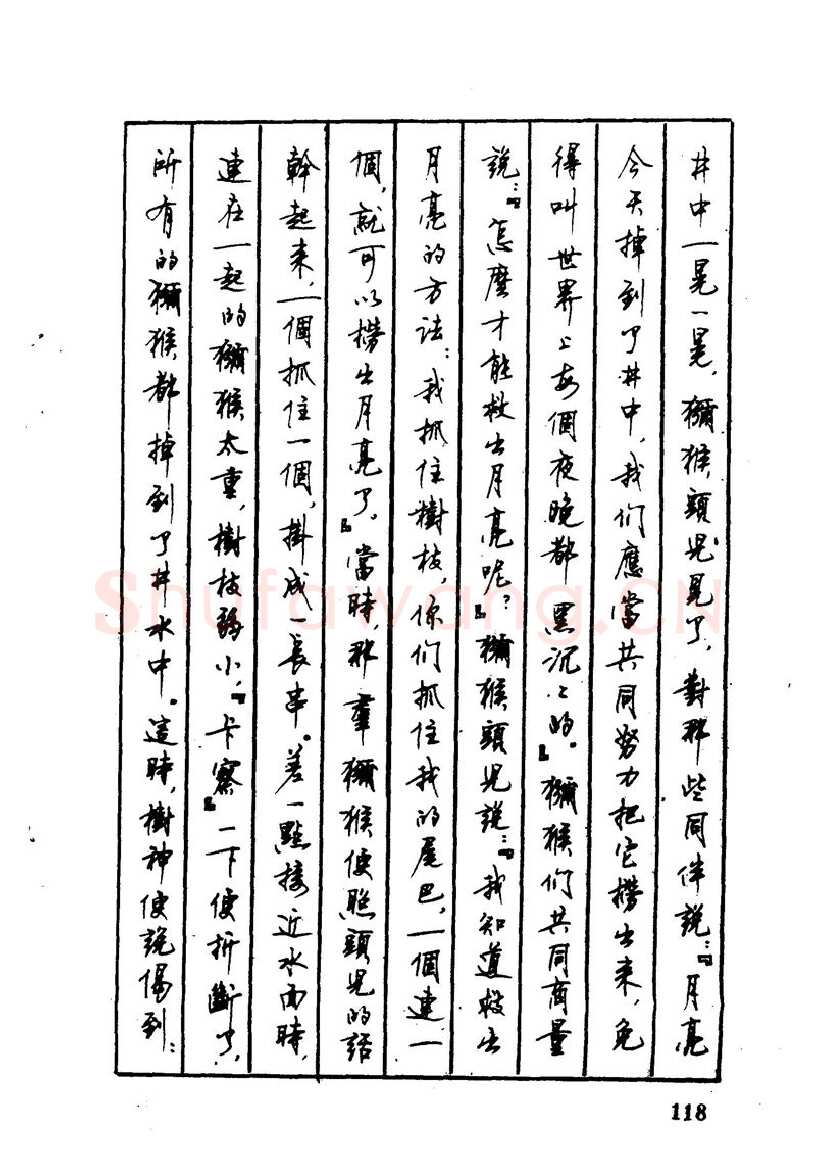 井中一晃一晃，獼猴頭兒見了，對那些同伴說：『月亮
今天掉到了井中，我们應當共同努力把它撈出来，免
得叫世界上每個夜晚都黑沉〻的。』獼猴们共同商量
說：『怎麽才能救出月亮呢？』獼猴頭兒說：『我知道救出
月亮的方法：我抓住樹枝，你们抓住我的尾巴，一個連一
個，就可以撈出月亮了。』當時，那羣獼猴便照頭兒的話
幹起来，一個抓住一個，掛成一長串。差一點接近水面時，
連在一起的獼猴太重，樹枝弱小，『卡察』一下便折斷了，
所有的獼猴都掉到了井水中。這時，樹神便說偈到：
118
Shufawang.CN